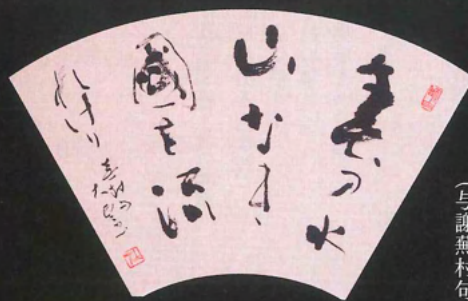 春の水
山なき
國を流
れけり
(与謝蕪村句